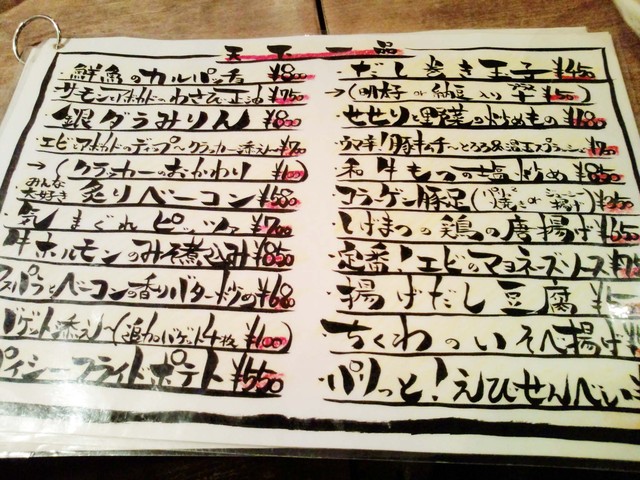 天下一品
鮮魚のカルパッチョ ¥800
サーモンアボカドのわさび正油 ¥750
銀ダラみりん ¥800
エビとアボカドのディップ〜クラッカー添え〜 ¥700
→(クラッカーのおかわり ¥100)
みんな大好き 炙りベーコン ¥580
気まぐれピッツァ ¥700
牛ホルモンのみそ煮込み ¥850
スパラとベーコンの香りバター炒め ¥680
バゲット添え〜(追加バゲット4枚 ¥100)
パイシーフライドポテト ¥550
だし巻き玉子 ¥450
→(明太子 or 納豆入り ¥50)
せせりと野菜の炒めもの
ウマ辛!豚キムチ〜とろろ&温玉プラス〜
和牛もつの塩炒め ¥850
コラーゲン豚足(焼き or 揚げ)
しげまつの鶏の唐揚げ ¥650
定番!エビのマヨネーズソース
揚げだし豆腐
ちくわのいそべ揚げ
パリっと!えびせんべい